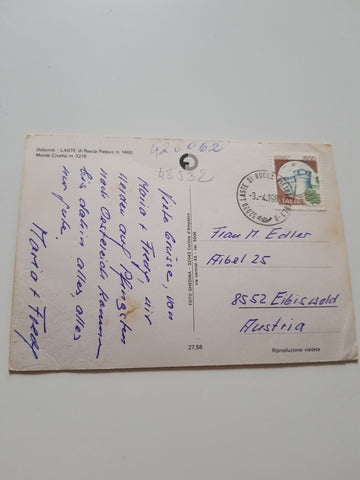 Dolomiti - LASTE di Rocca Pietore m 1460
Monte Civetta m 3218
420062
43532
Viele Grüsse, von
Maria + Fredy, wir
werden auf Pfingsten
nach Oesterreich kommen
bis dahin alles, alles
nur gute.
Maria + Fredy
FOTO GHEDINA - 32043 Cortina d'Ampezzo
27.58
LASTE DI ROCCA
3.-4.198
ITALIA
Frau M. Edler
Aibel 25
8552 Eibiswald
Austria
Riproduzione vietata